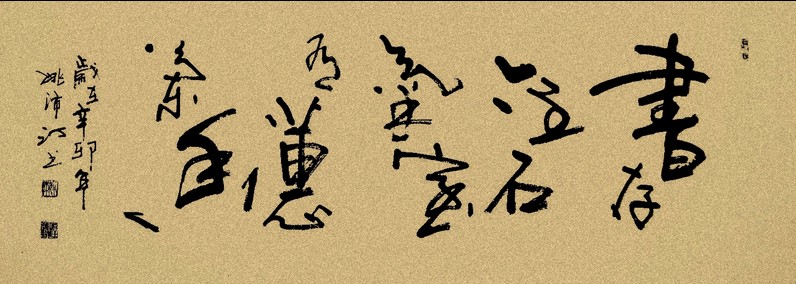 書存
金石
氣室
有蕙
蘭香
歲在辛卯年
姚沛书